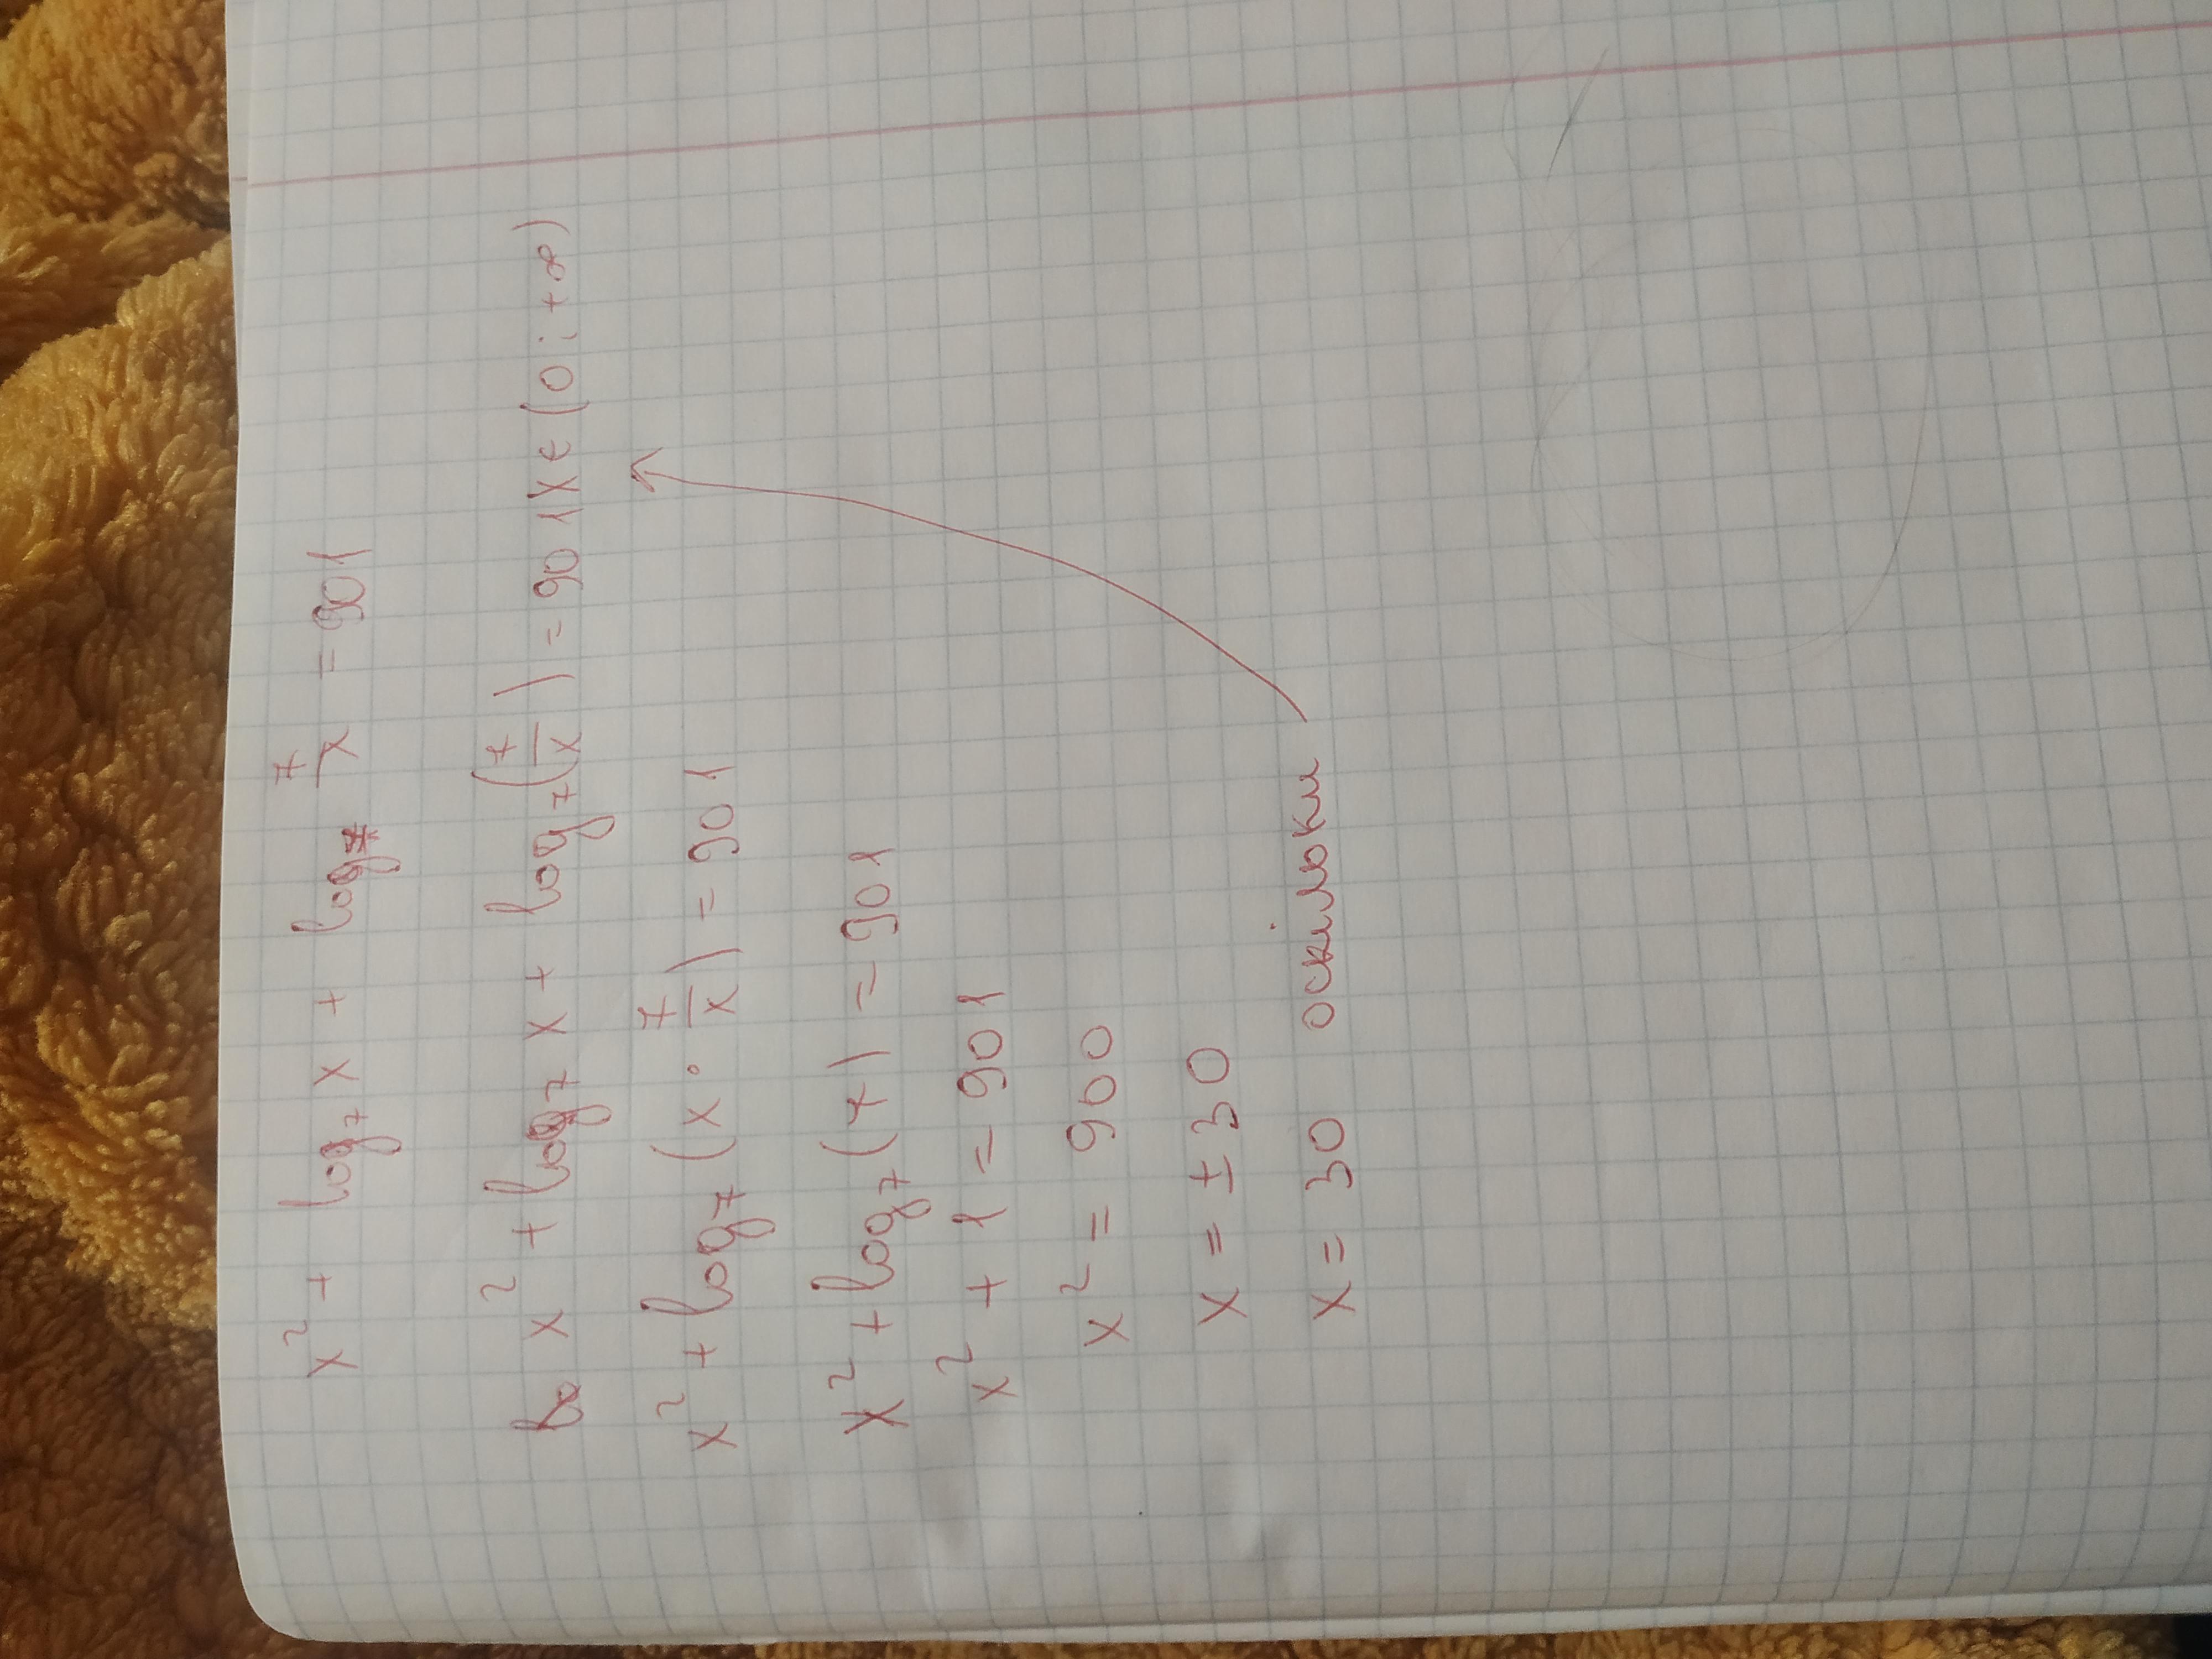 x² + log₇ x + log₇ 7/x = 901
x² + log₇ x + log₇(7/x) = 901 x ∈ (0; +∞)
x² + log₇ (x · 7/x) = 901
x² + log₇ (7) = 901
x² + 1 = 901
x² = 900
x = ± 30
x = 30 оскільки